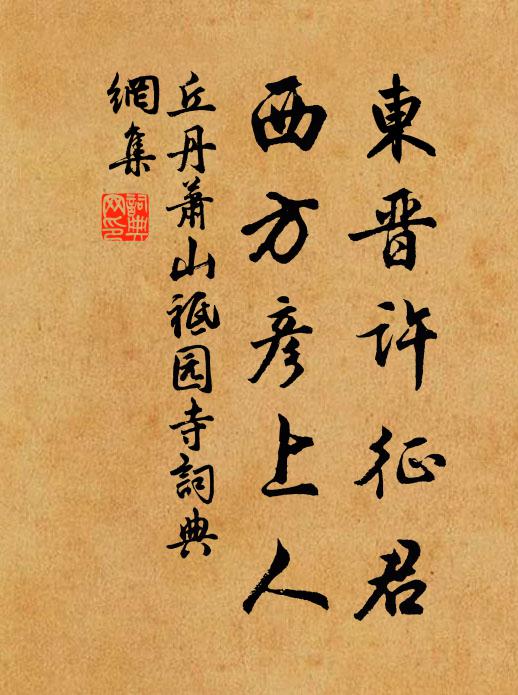 東晋許征君
西方彦上人
丘丹蕭山祗园寺詞典
網集
詞典
网印